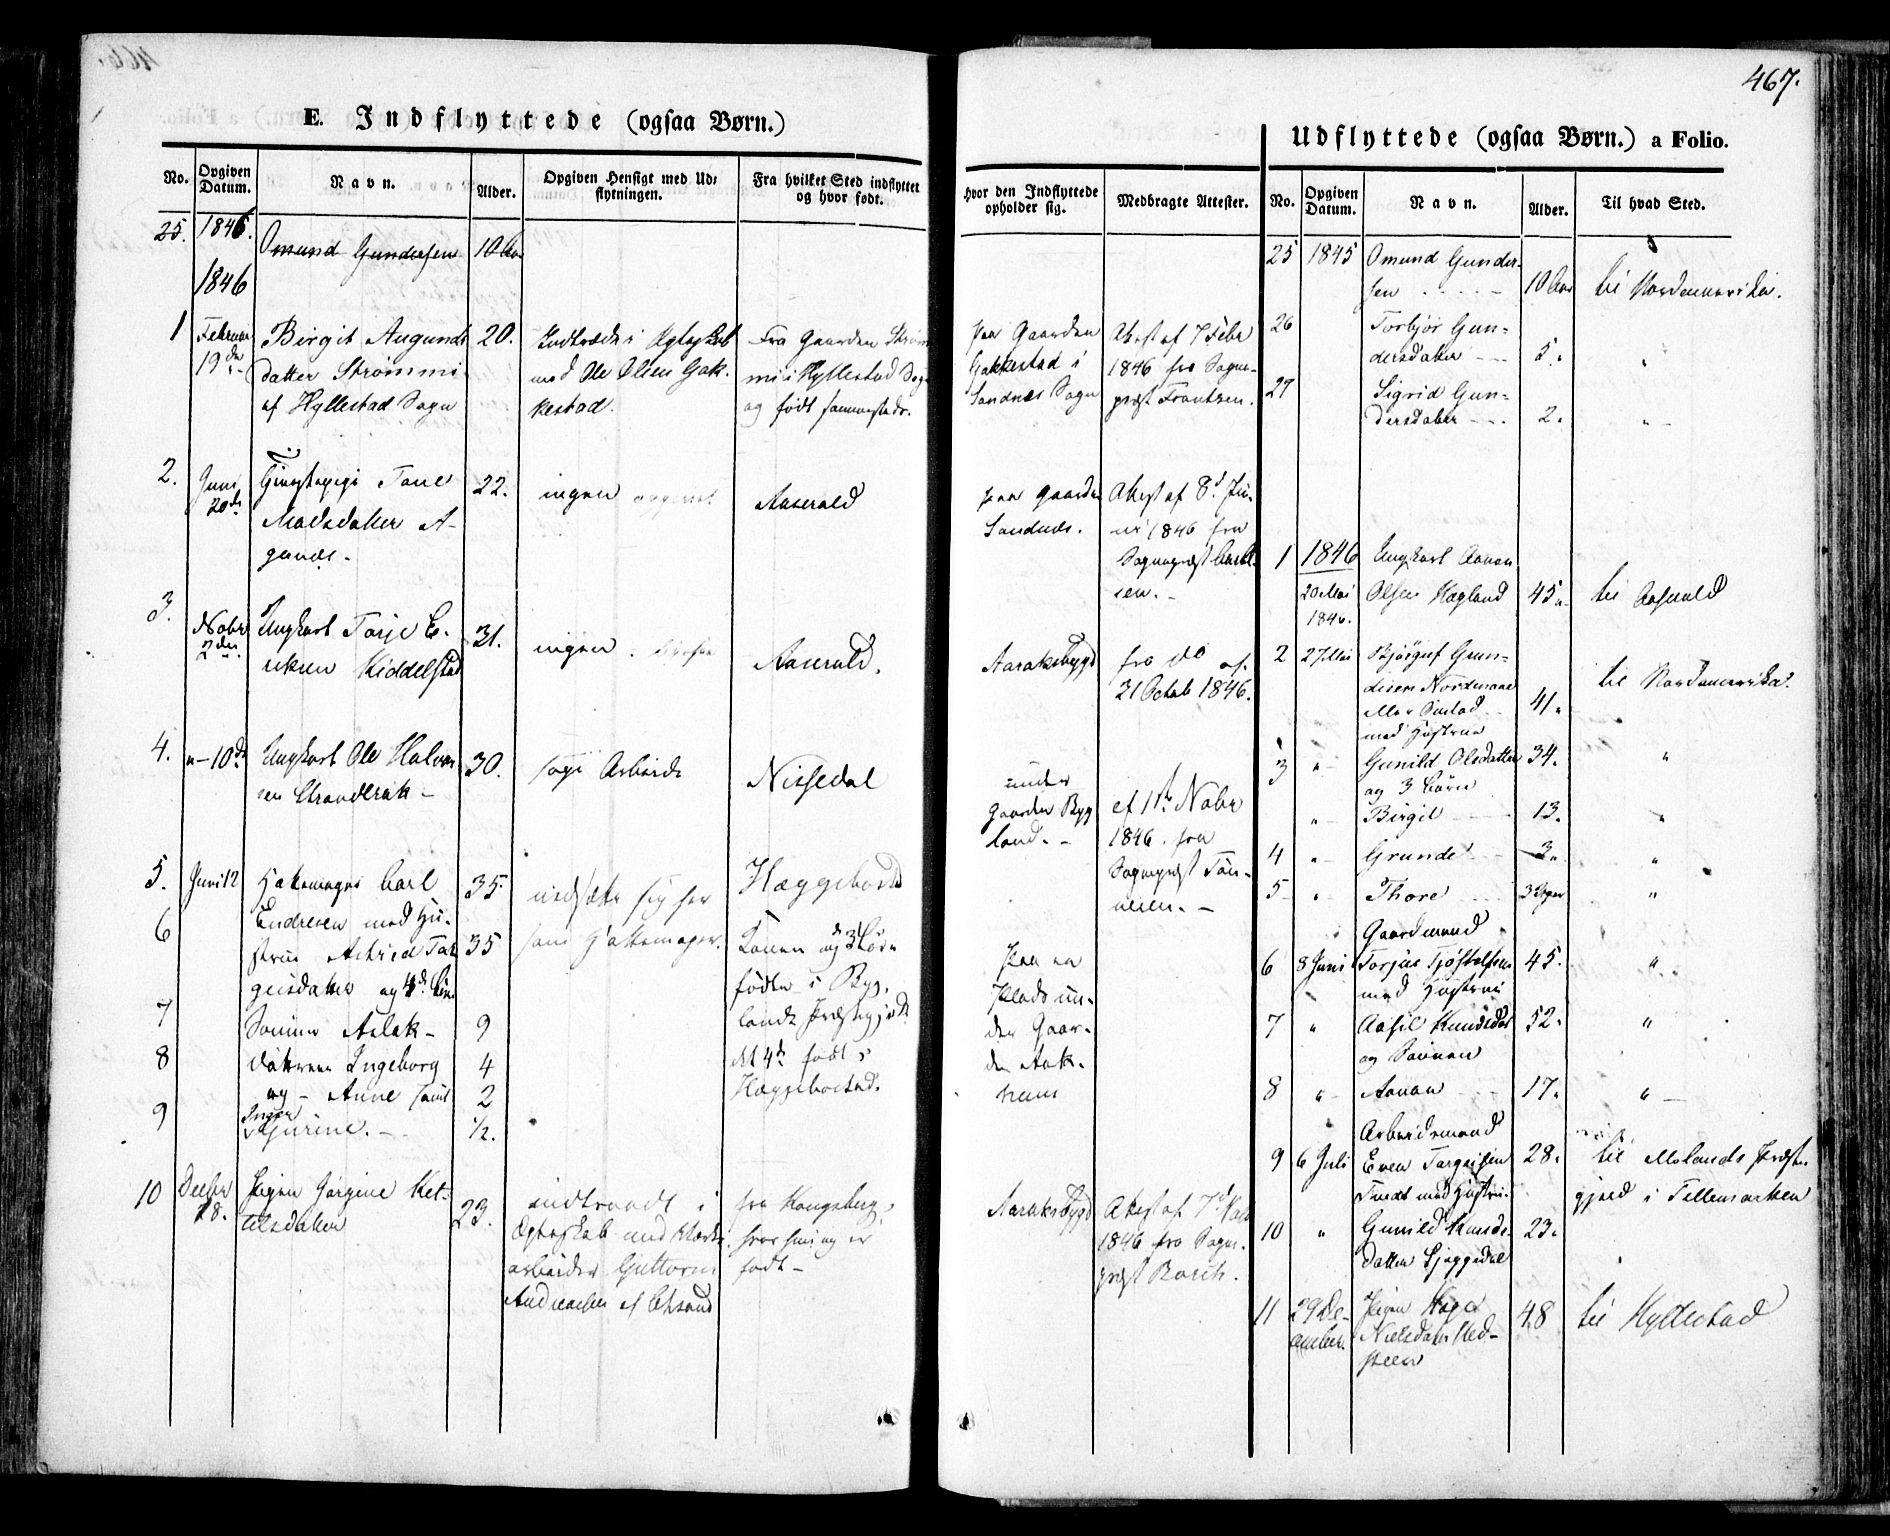 467.
E. Indflyttede (ogsaa Børn.)
No.
Opgiven Datum.
Navn.
Alder.
Opgiven Hensigt med Udflytningen.
Fra hvilket Sted indflyttet og hvor født.
25. 1845. Omund Gundersen 10 Aar
1846
1 Februar 19de
Birgit Augunds
datter Strømmi
af Hyllestad Sogn
20.
Indtræde i Egteskab
med Ole Olsen Gak-
kestad.
Fra Gaarden Strøm
mi i Hyllestad Sogn
og født sammesteds.
2. Juni 20de
Tone
Madsdatter A-
22.
ingen
Aaserald
3. Novbr 2den
Ungkarl Torje E-
riksen Kiddelstad
31.
ingen
Aaserald.
4. " - 10de
Ungkarl Ole Halvor
sen
30.
søge Arbeide
Nissedal
5. Juni 12
Carl
35.
nedsætte sig her
som Hattemager.
Hæggebostad
6
Endresen med Hu-
strue Astrid Tar
geisdatter og 4de Børn
35
Konen og de 3 Børn
fødte i Byg-
lands Præstegjeld
det 4de født i
Hæggebostad.
7 Sønnen Aslak - 9
8 Døttrene Ingeborg 4
og - Anne samt 2
9 Inger
Jurine. - 1/2.
10 Decbr 28.
Pigen Jørgine Ket-
telsdatter
23.
indtraadt i
Egteskab med
arbeider Guttorm
Andreasen af Chrsand
fra Kongsberg,
hvor hun og er
født -
Hvor den Indflyttede opholder sig.
Medbragte Attester.
paa Gaarden
Gakkestad i
Sandnes Sogn
Attest af 7 Febr
1846 fra Sogne-
præst Frantzen.
paa Gaarden
Sandnes.
Attest af 8de Ju-
ni 1846 fra
Sognepræst Carl-
sen. -
Aaraksbygd
fra do af
21 Octob 1846.
under
Gaarden Byg
land. -
af 1ste Novbr
1846. fra
Sognepræst Tøn-
nesen. -
Paa en
Plads un-
der Gaar-
den Aak-
hus
Aaraksbygd
Attest af 7de
1846 fra Sogne-
præst
Udflyttede (ogsaa Børn.) a Folio.
No.
Opgiven Datum.
Navn.
Alder.
Til hvad Sted.
25 1845 Omund Gunder-
sen 10 Aar til Nordamerika.
26 Torbjør Gun-
dersdatter 5. "
27 Sigrid Gun-
dersdatter 2. "
1 1846
20 Mai
1846.
Ungkarl Aanon
Olsen Hægland 45. til Aaserald
2 27 Mai
Bjørguf Gun-
dersen Nordmane
41. til Nordamerika.
med Hustrue
3 " Gunild Olsdatter 34. "
og 3 Børn
" Birgit 13. "
4 " Grunde 3. "
5 " Thore 3 Uger "
Gaardmand
6 8 Juni Torjus Tjøstolfsen 45. "
med Hustrue
7 " Aasil Knudsdat 52. "
og Sønnen
8 " Aanon 17. "
Arbeidsmand
9 6 Juli Even Targeisen 28. til Molands Præste-
med Hustrue
gjeld i Tellemarken
10 " Gunild Knuds-
datter 23.
11 29 De-
cember. Pigen
Nielsdatter
48 til Hyllestad